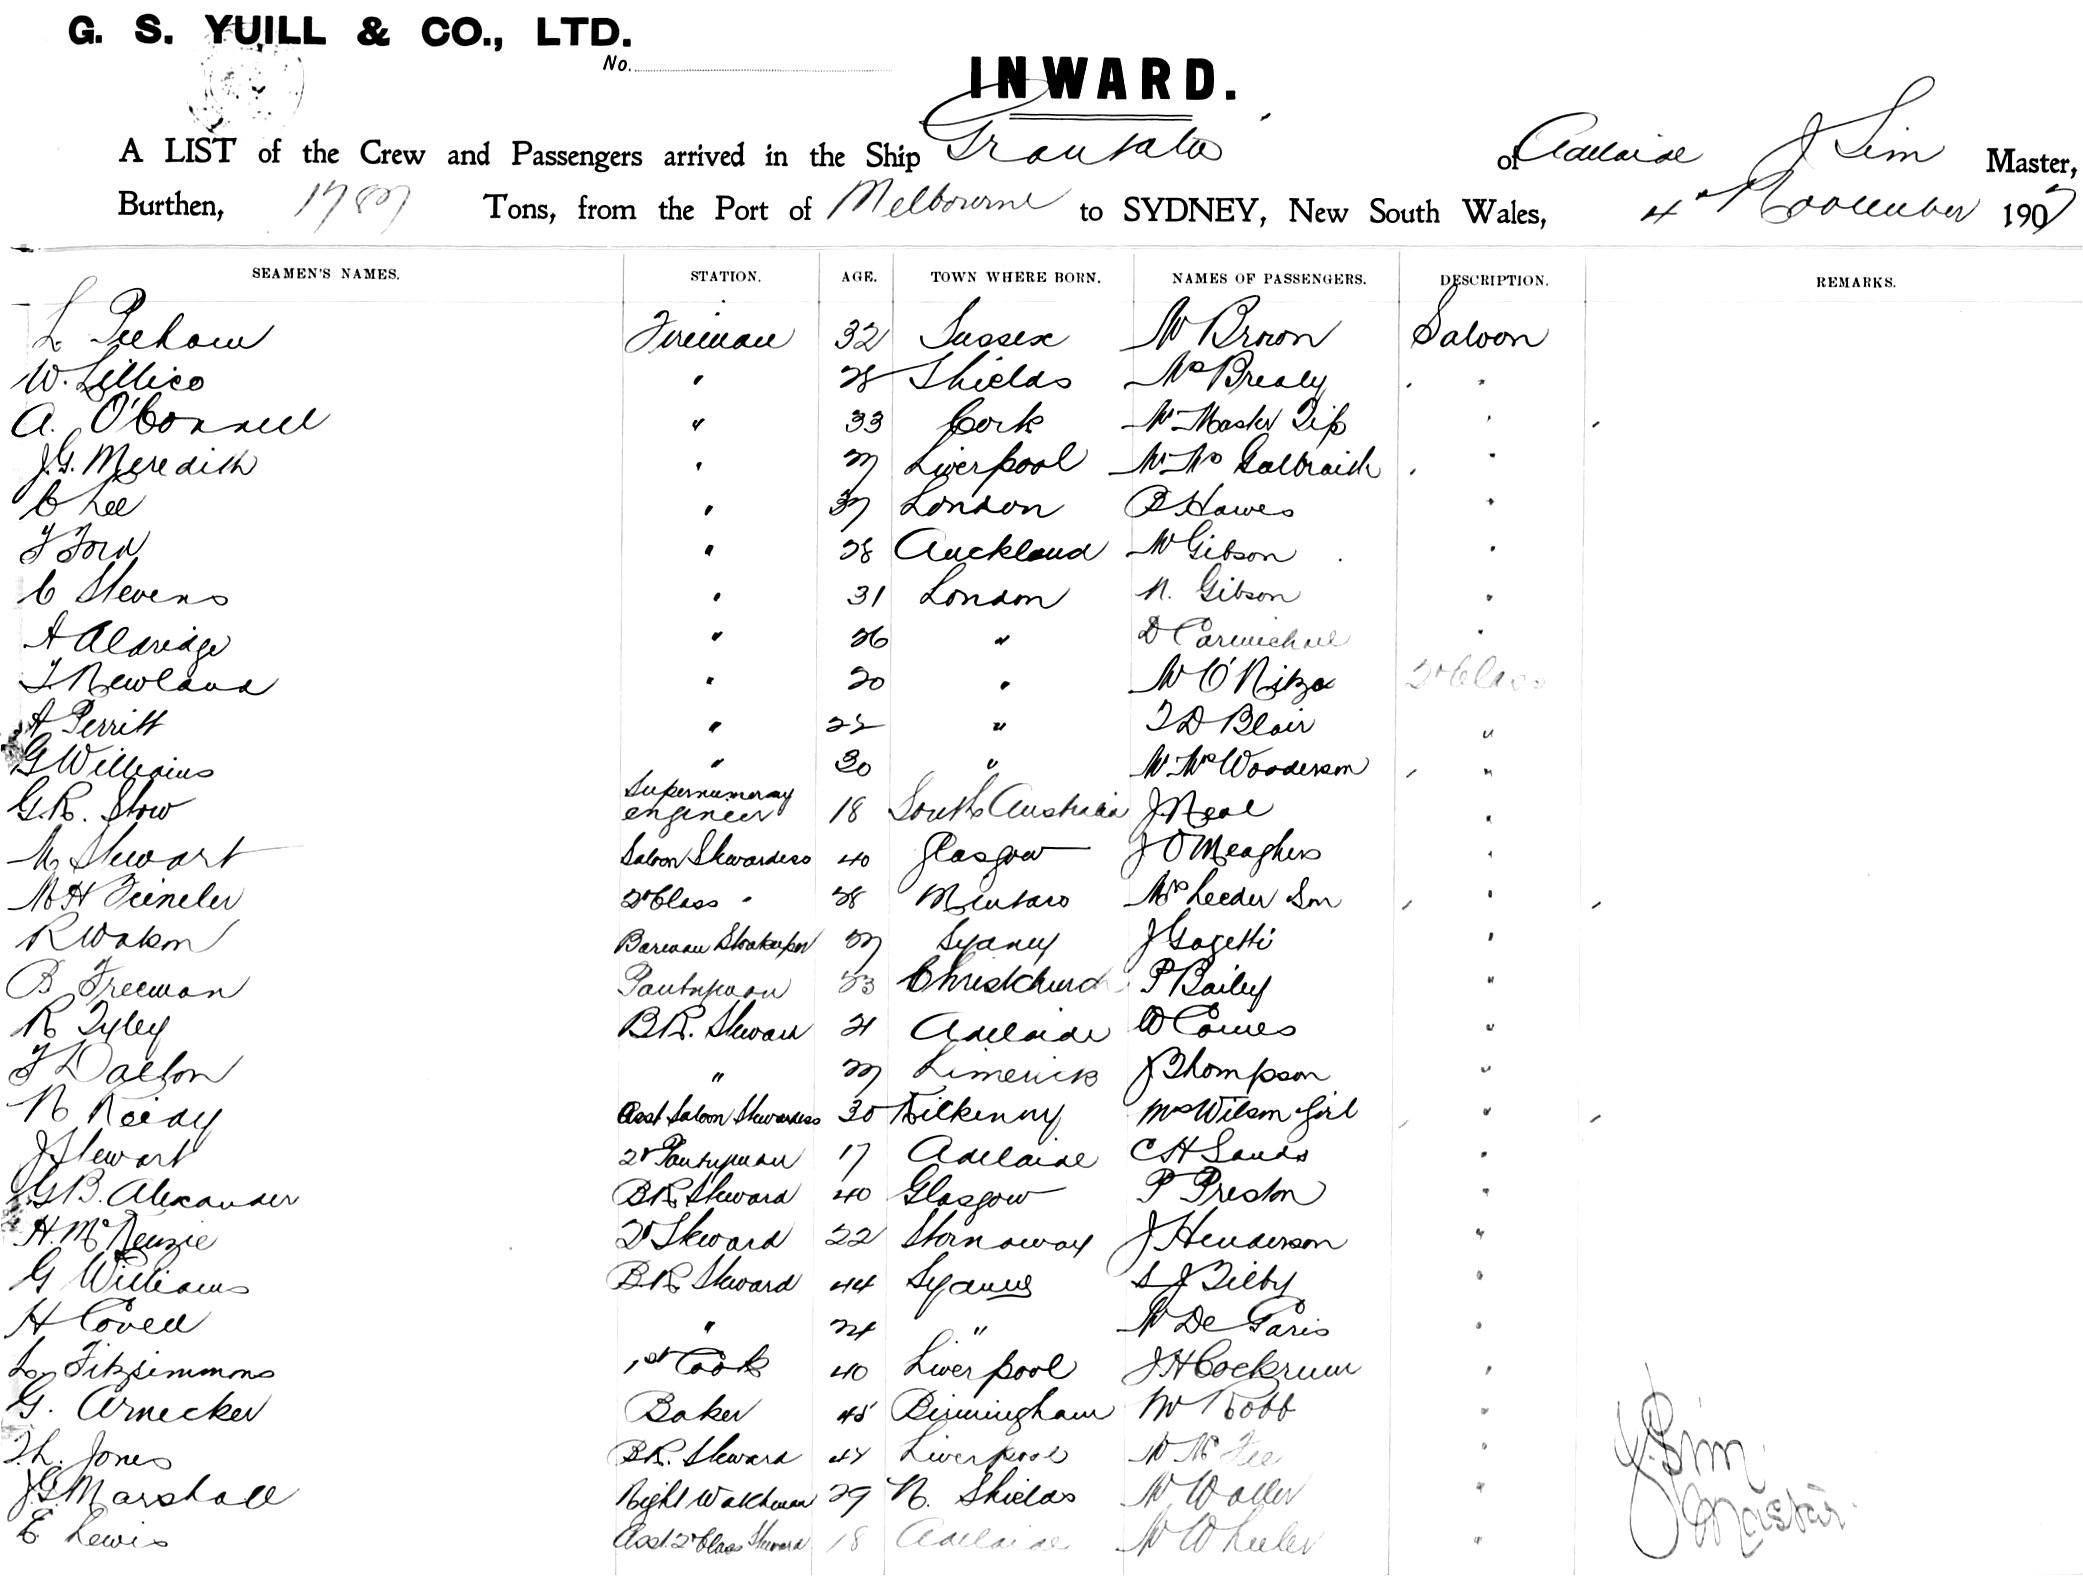 G. S. YUILL & CO., LTD.
No.
INWARD.
A LIST of the Crew and Passengers arrived in the Ship Grantala of Adelaide J Sim Master,
Burthen, Tons, from the Port of Melbourne to SYDNEY, New South Wales, 4th November 1907
SEAMEN'S NAMES. STATION. AGE. TOWN WHERE BORN. NAMES OF PASSENGERS. DESCRIPTION. REMARKS.
L Fireman 32 Sussex Mr Brown Saloon
W. Lillico " 28 Shields Mrs Brealy "
A. O'Connell " 33 Cork Mr Master "
J.G. Meredith " 27 Liverpool Mr Mrs Galbraith "
C Lee " 37 London Hawes "
F Ford " 28 Auckland Mr Gibson "
C Stevens " 31 London N. Gibson "
A Aldridge " 26 " D Carmichael "
T Newland " 20 " Mr 2nd Class
A Perritt " " T D Blair "
G Williams " 30 " Mr Mrs Wooderson "
G.R. Stow Supernumeray engineer 18 South Australia J. Neal "
M Stewart Saloon Stewardess 40 Glasgow J O'Meaghers "
M H 2nd Class " 28 Mintaro Mrs Leeder Son "
R Barman Storekeeper 27 Sydney J Gagetti "
B Freeman Pantryman 23 Christchurch P Bailey "
R Tyley B.R. Steward 21 Adelaide W "
F Dalton " 27 Limerick J Thompson "
N Reidy Asst Saloon Stewardess 30 Kilkenny Mrs Wilson Girl "
J Stewart 2nd Pantryman 17 Adelaide C H Sands "
G B. Alexander B.R. Steward 40 Glasgow P Preston "
H. McKenzie 2nd Steward 22 Stornaway J Henderson "
G Williams B.R. Steward 44 Sydney S J Bilby "
H Covell " 24 " Mr De Garis "
L Fitzsimmons 1st Cook 40 Liverpool J H Cockrum "
G. Arnecker Baker 45 Birmingham Mr Robb "
T.L. Jones B.R. Steward 44 Liverpool Mr McFee "
J G Marshall Night Watchman 29 N. Shields Mr Waller "
E Lewis Asst 2nd Class Steward 18 Adelaide Mr Wheeler "
J. Sim
Master.